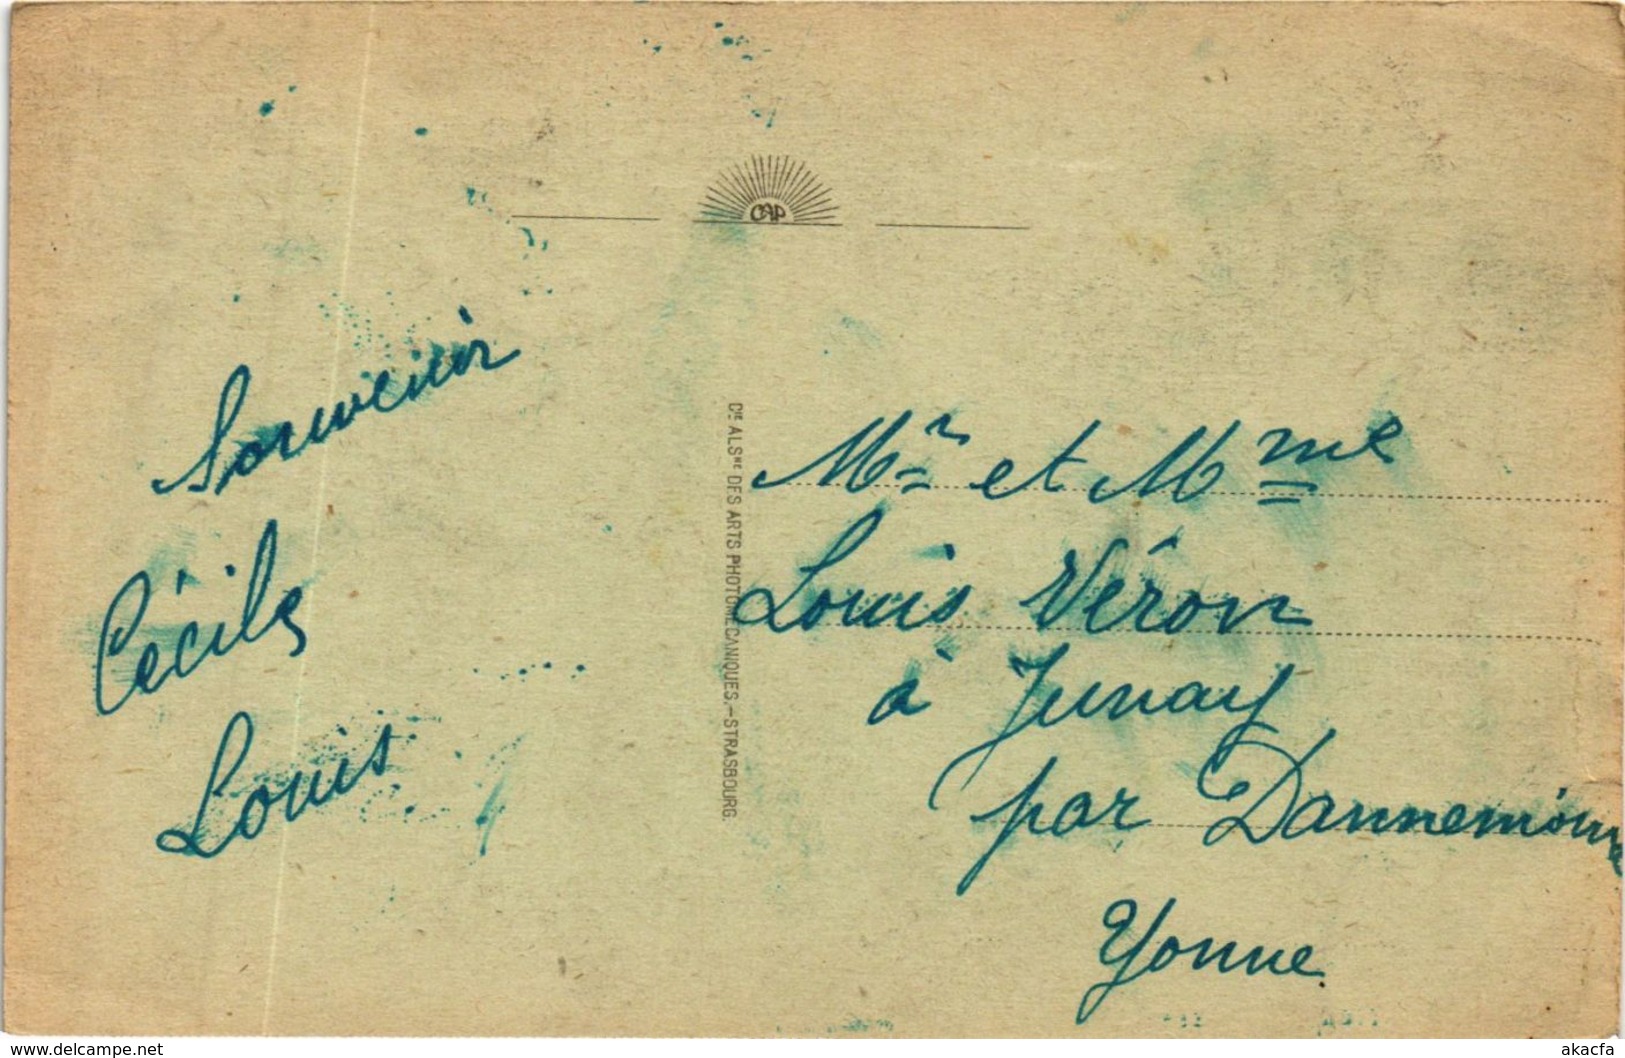 CAP
Souvenir
Cécile
Louis
Cie ALSne DES ARTS PHOTOMECANIQUES.-STRASBOURG.
Mr et Mme
Louis Véron
à Junay
par Dannemoine
Yonne
www.delcampe.net
akacfa